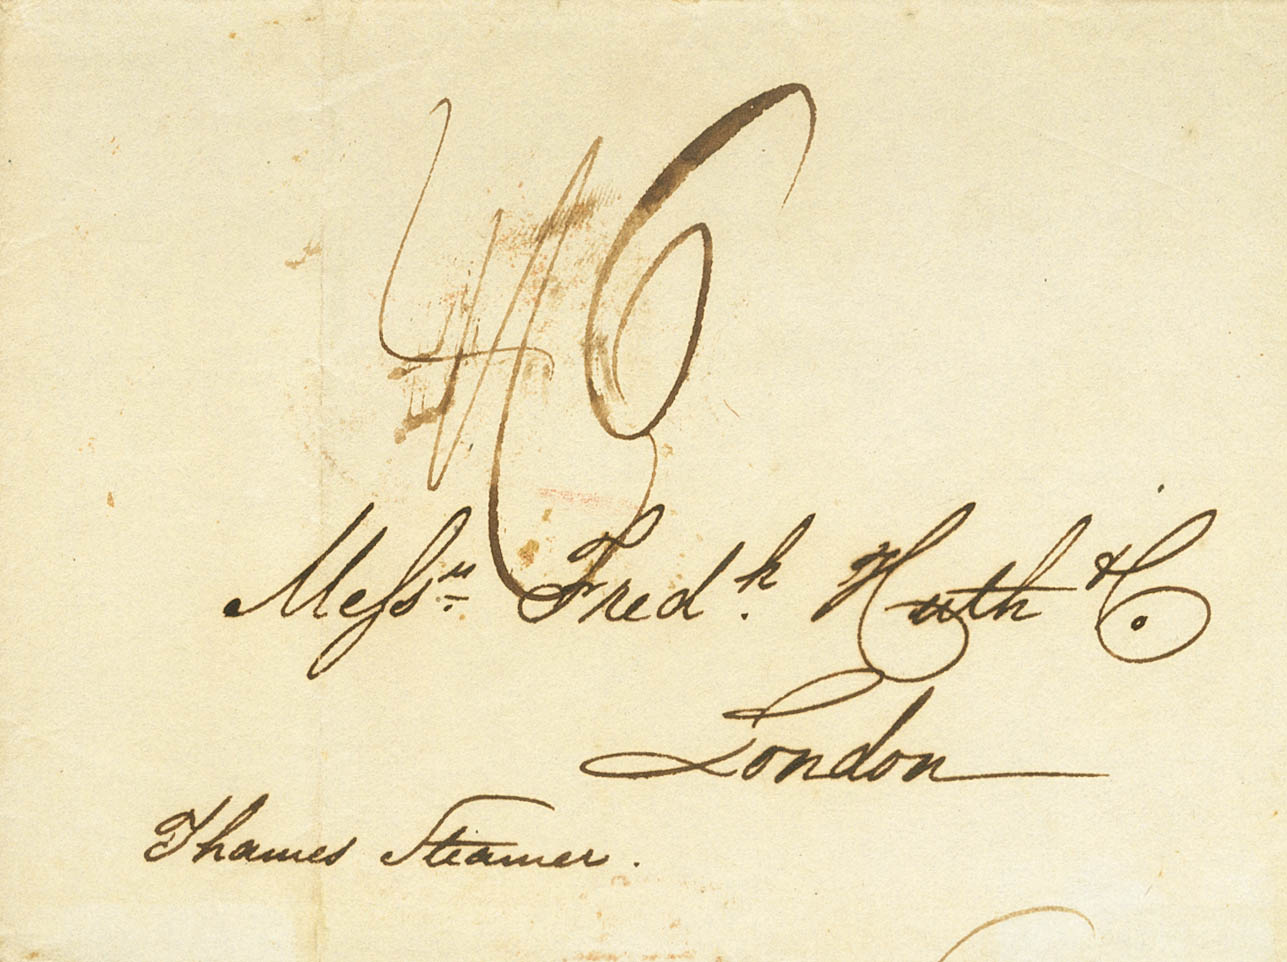 Messrs Fredk. Huth & Co.
London
Thames Steamer.